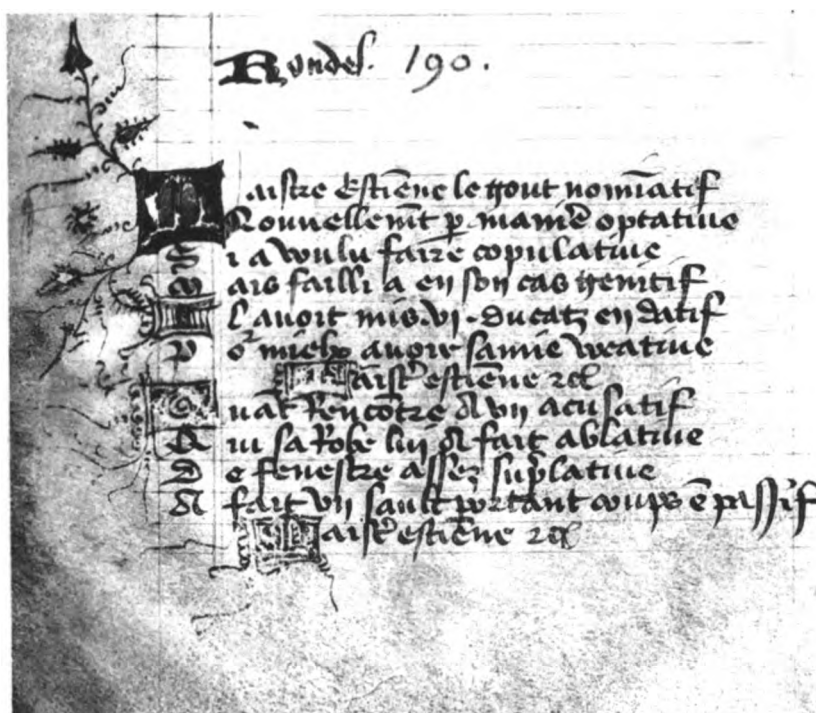 Rondel. 190.
Maistre Estiēne le gout nomīatif
Nouvellemt p maniē optative
Si a voulu faire copulative
Mais failli a en son cas genitif
Il avoit mis .vi. ducatz en datif
Por mielx avoir samie vocative
Maistr estiēne zc
Quāt Rencōtre a vn acusatif
Qui sa Robe lui a fait ablative
De fenestre assez suplative
A fait vn sault portant coups ē passif
Maistr estiēne zc